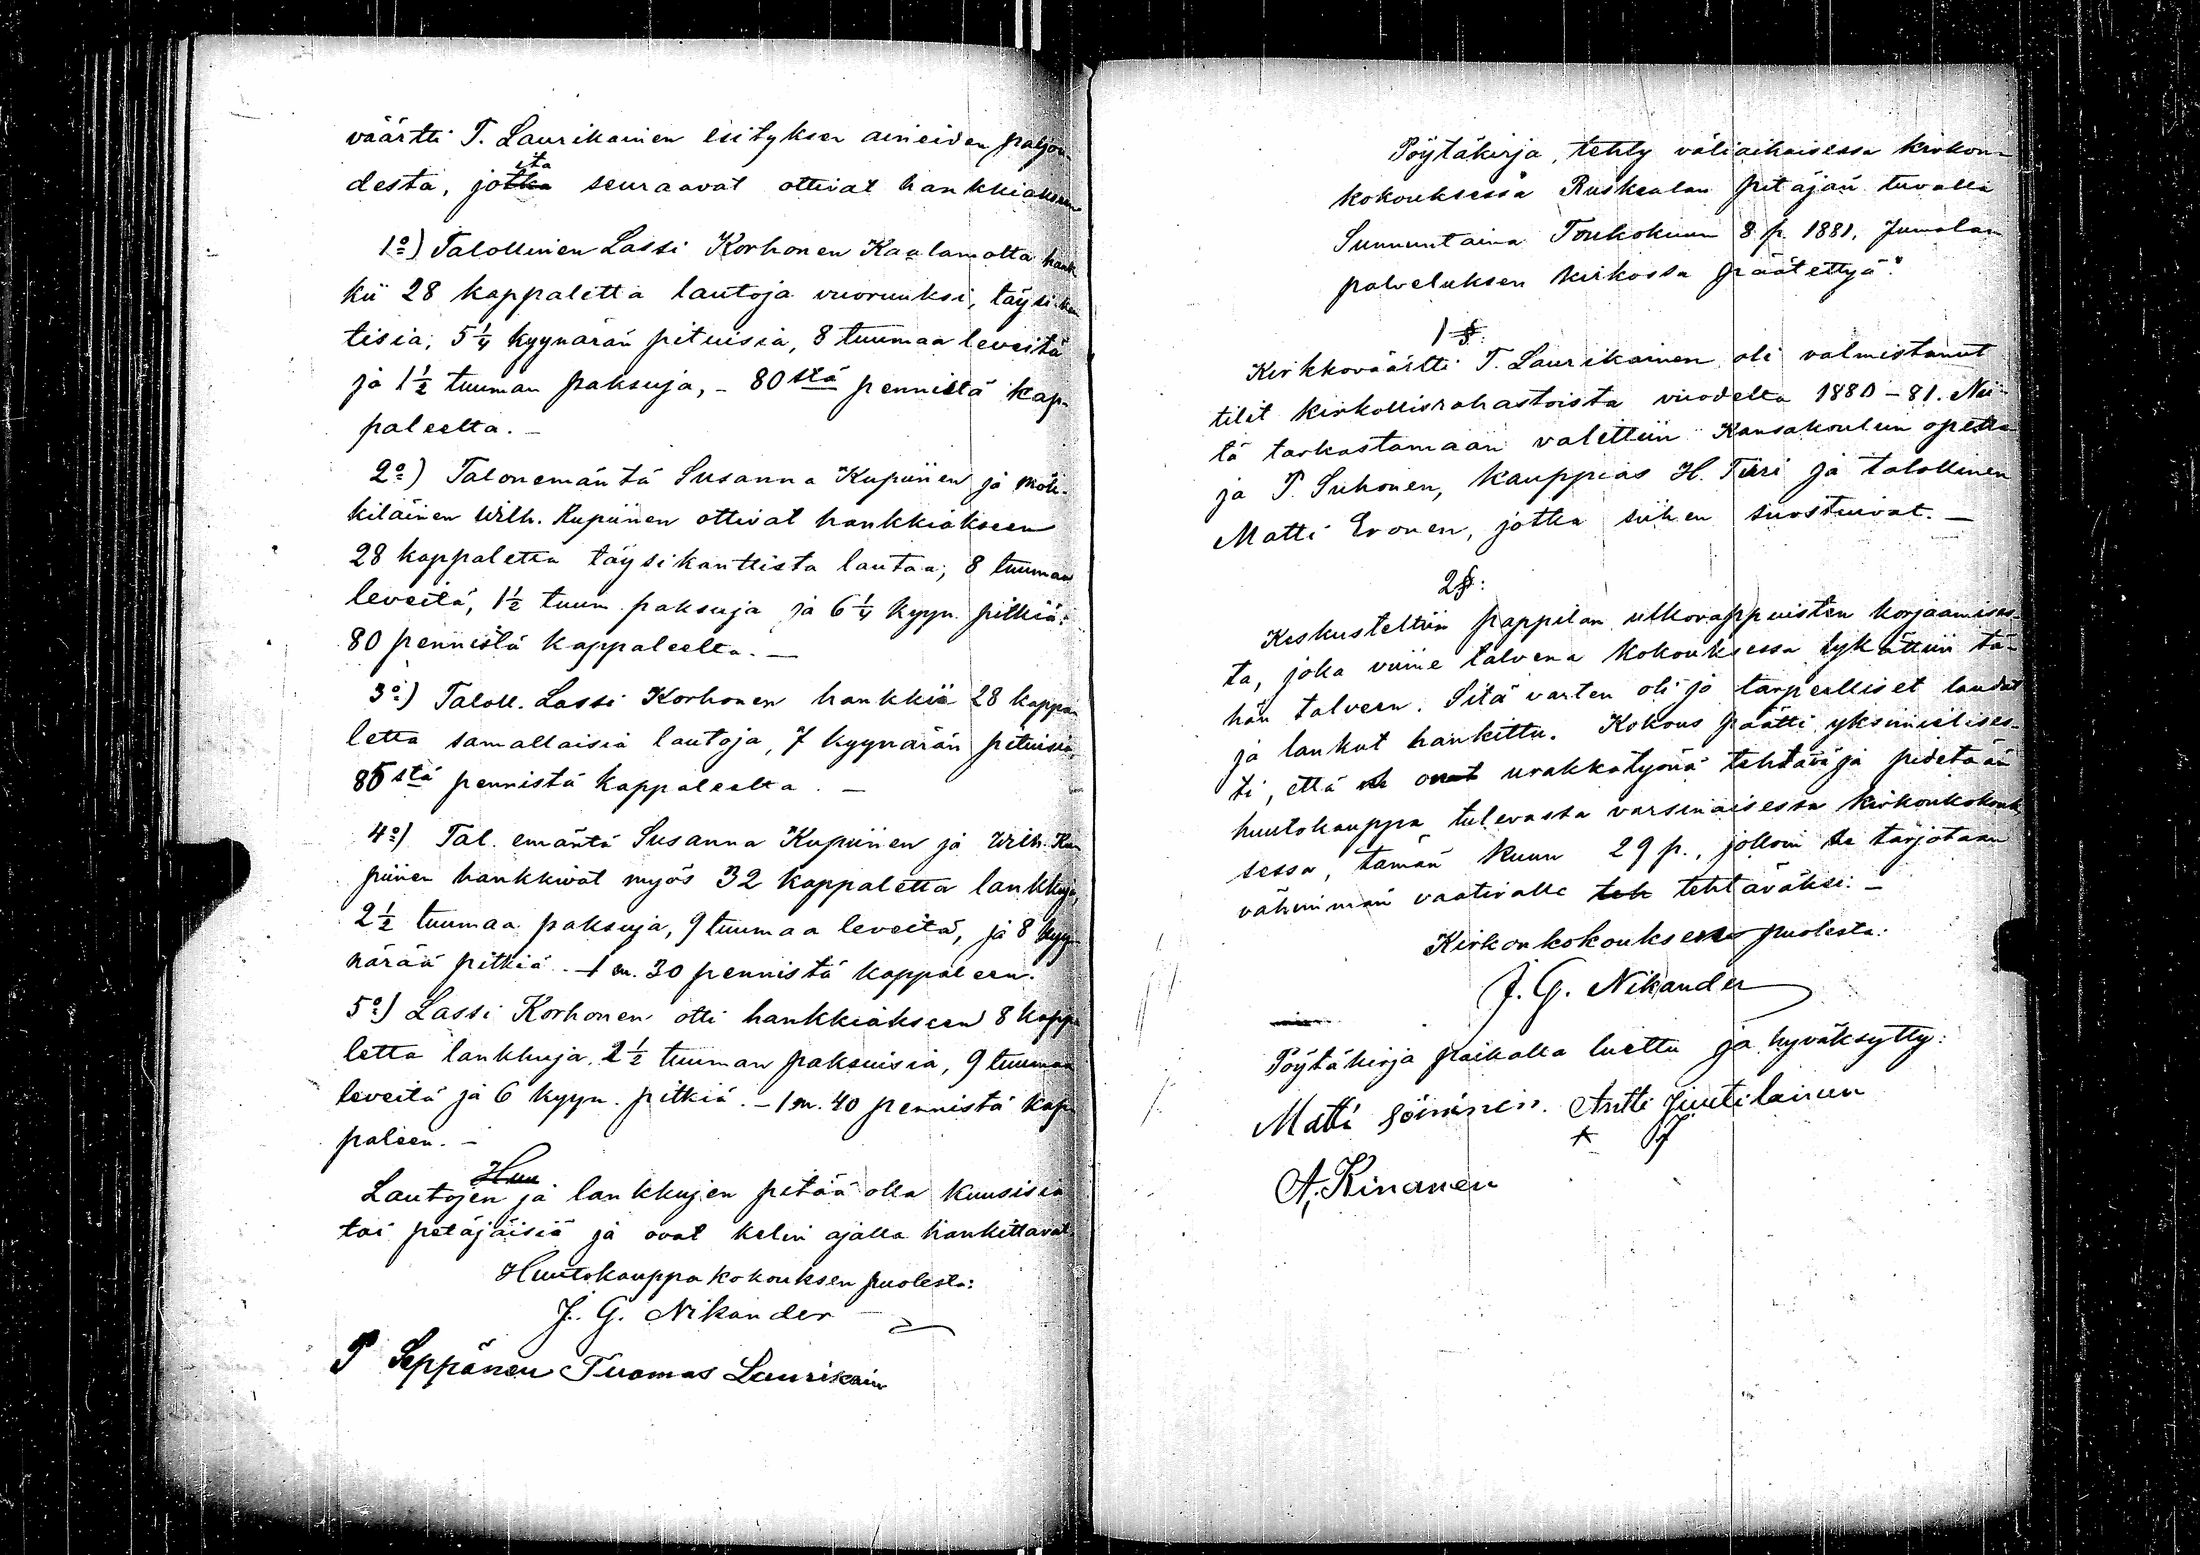 väärtti T. Laurikainen esityksen aineiden paljou-
desta, joita seuraavat ottivat hankkiakseen
1o) Talollinen Lassi Korhonen Kaalamolta hank
kii 28 kappaletta lautoja vuoruuksi, täysikan
tisia, 5 1/4 kyynärän pituisia, 8 tuumaa leveitä
ja 1 1/2 tuuman paksuja, - 80stä pennistä kap-
paleelta. -
2o) Talonemäntä Susanna Kupiinen ja mök-
kiläinen Wilh. Kupiinen ottivat hankkiakseen
28 kappaletta täysikanttista lautaa, 8 tuumaa
leveitä, 1 1/2 tuum. paksuja ja 6 1/4 kyyn. pitkiä:
80 pennistä kappaleelta. -
3o) Taloll. Lassi Korhonen hankkia 28 kappa
letta samallaisia lautoja, 7 kyynärän pituisia
85stä pennistä kappaleelta. -
4o) Tal. emäntä Susanna Kupiinen ja Wilh. Ku
piinen hankkivat myös 32 kappaletta lankkuja,
2 1/2 tuumaa paksuja, 9 tuumaa leveitä, ja 8 kyy-
närää pitkiä. - 1 m. 30 pennistä kappaleen.
5o) Lassi Korhonen otti hankkiakseen 8 kappa
letta lankkuja 2 1/2 tuuman paksuisia, 9 tuumaa
leveitä ja 6 kyyn. pitkiä. - 1 m. 40 pennistä kap
paleen. -
Lautojen ja lankkujen pitää olla kuusisia
tai petäjäisiä ja ovat kelin ajalla hankittavat.
Huutokauppakokouksen puolesta:
J. G. Nikander
P Seppänen Tuomas Laurikain
Pöytäkirja, tehty väliaikaisessa kirkon-
kokouksessa Ruskealan pitäjän tuvalla
Sunnuntaina Toukokuun 8 p. 1881, Jumalan
palveluksen kirkossa päätettyä.
1 §.
Kirkkoväärtti T. Laurikainen oli valmistanut
tilit kirkollisrahastoista vuodelta 1880-81. Nii-
tä tarkastamaan valittiin Kansakoulun opetta
ja P. Suhonen, kauppias H. Tiiri ja talollinen
Matti Eronen, jotka siihen suostuivat. -
2 §:
Keskusteltiin pappilan ulkorappuisten korjaamises-
ta, joka viime talvena kokouksessa lykättiin tä-
hän talveen. Sitä varten oli jo tarpeelliset laudat
ja lankut hankittu. Kokous päätti yksimielises-
ti, että urakkatyönä tehtävä ja pidetään
huutokauppa tulevassa varsinaisessa kirkonkokouk
sessa, tämän kuun 29 p., jolloin se tarjotaan
vähimmän vaativalle teh tehtäväksi. -
Kirkonkokouksen puolesta:
J. G. Nikander
Pöytäkirja paikalla luettu ja hyväksytty:
Matti Antti Juutilainen
A. Kinanen